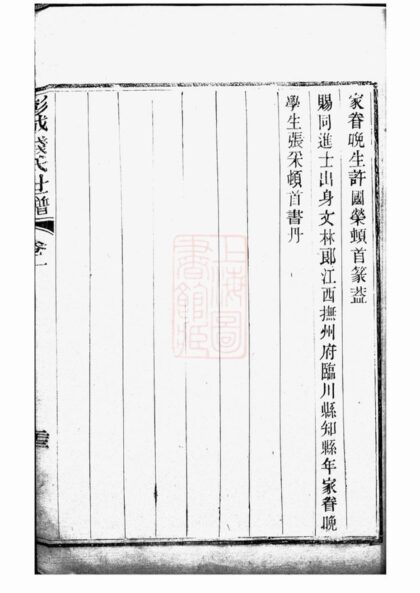 家眷晩生許國榮頓首篆葢
賜同進士出身文林郎江西撫州府臨川縣知縣年家眷晩
學生張采頓首書丹
彭城錢氏世譜
卷一
上海圖書館藏